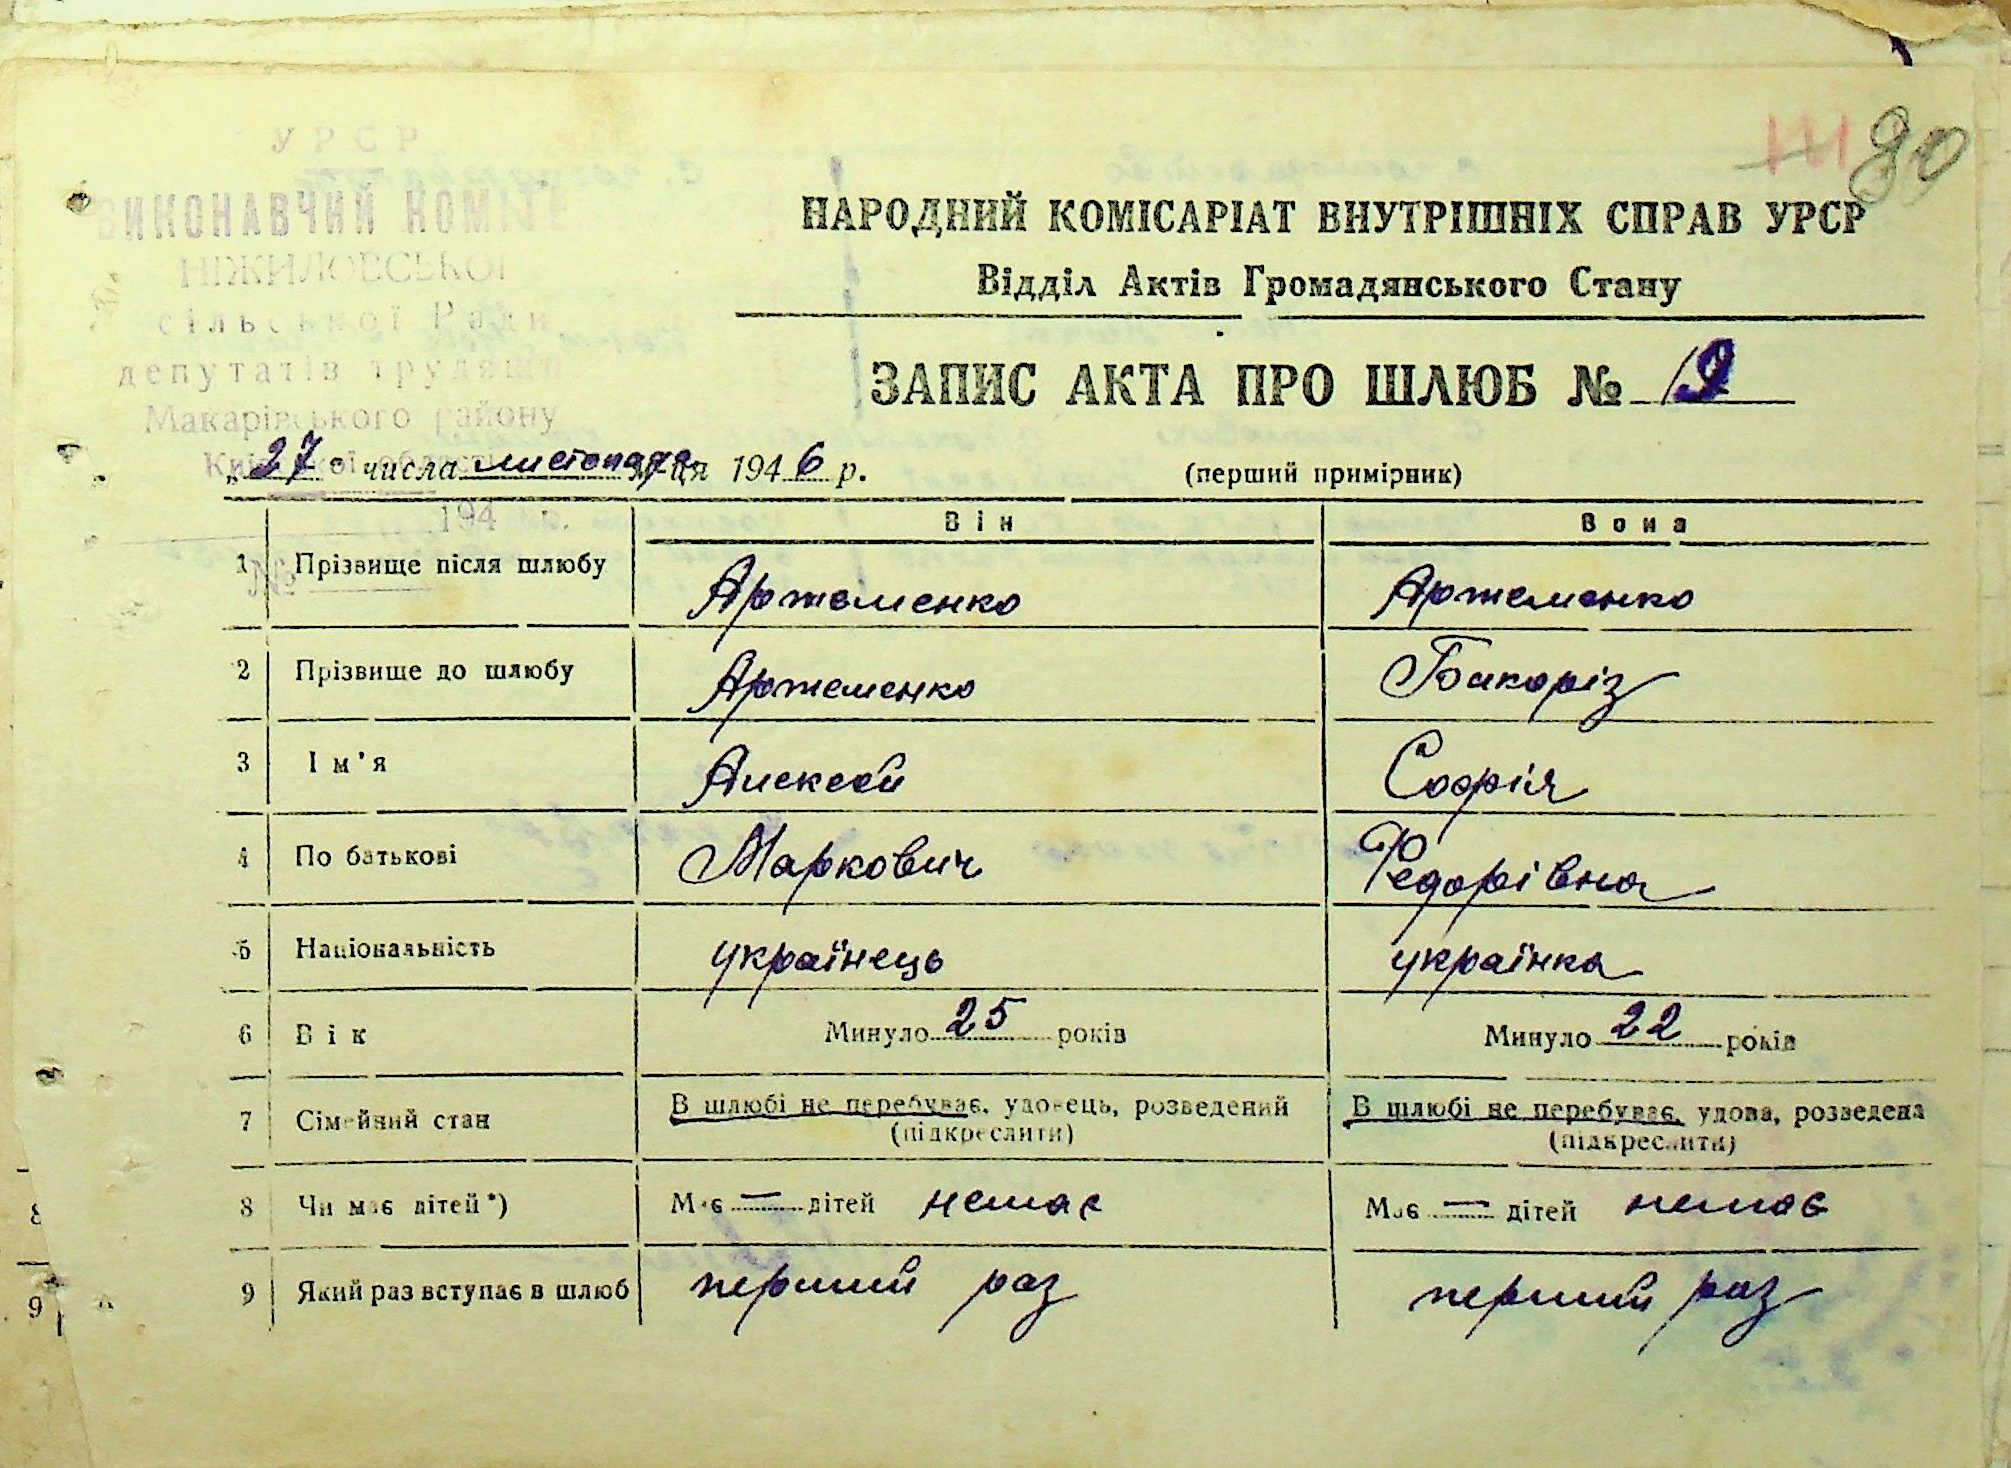 80
УРСР
ВИКОНАВЧИЙ КОМІТЕ
НІЖИЛОВСЬКОЇ
сільської Ради
депутатів трудящи
Макарівського району
Київської області
194 р.
№
НАРОДНИЙ КОМІСАРІАТ ВНУТРІШНІХ СПРАВ УРСР
Відділ Актів Громадянського Стану
ЗАПИС АКТА ПРО ШЛЮБ № 19
„27“ числа листопада м-ця 1946 р.
(перший примірник)
Він Вона
1 Прізвище після шлюбу Артеменко Артеменко
2 Прізвище до шлюбу Артеменко Бакоріз
3 Ім'я Алексей Софія
4 По батькові Маркович Федорівна
5 Національність українець українка
6 Вік Минуло 25 років Минуло 22 років
7 Сімейний стан В шлюбі не перебуває, удовець, розведений В шлюбі не перебуває, удова, розведена
(підкреслити) (підкреслити)
8 Чи має дітей*) Має — дітей немає Має — дітей немає
9 Який раз вступає в шлюб перший раз перший раз
8
9